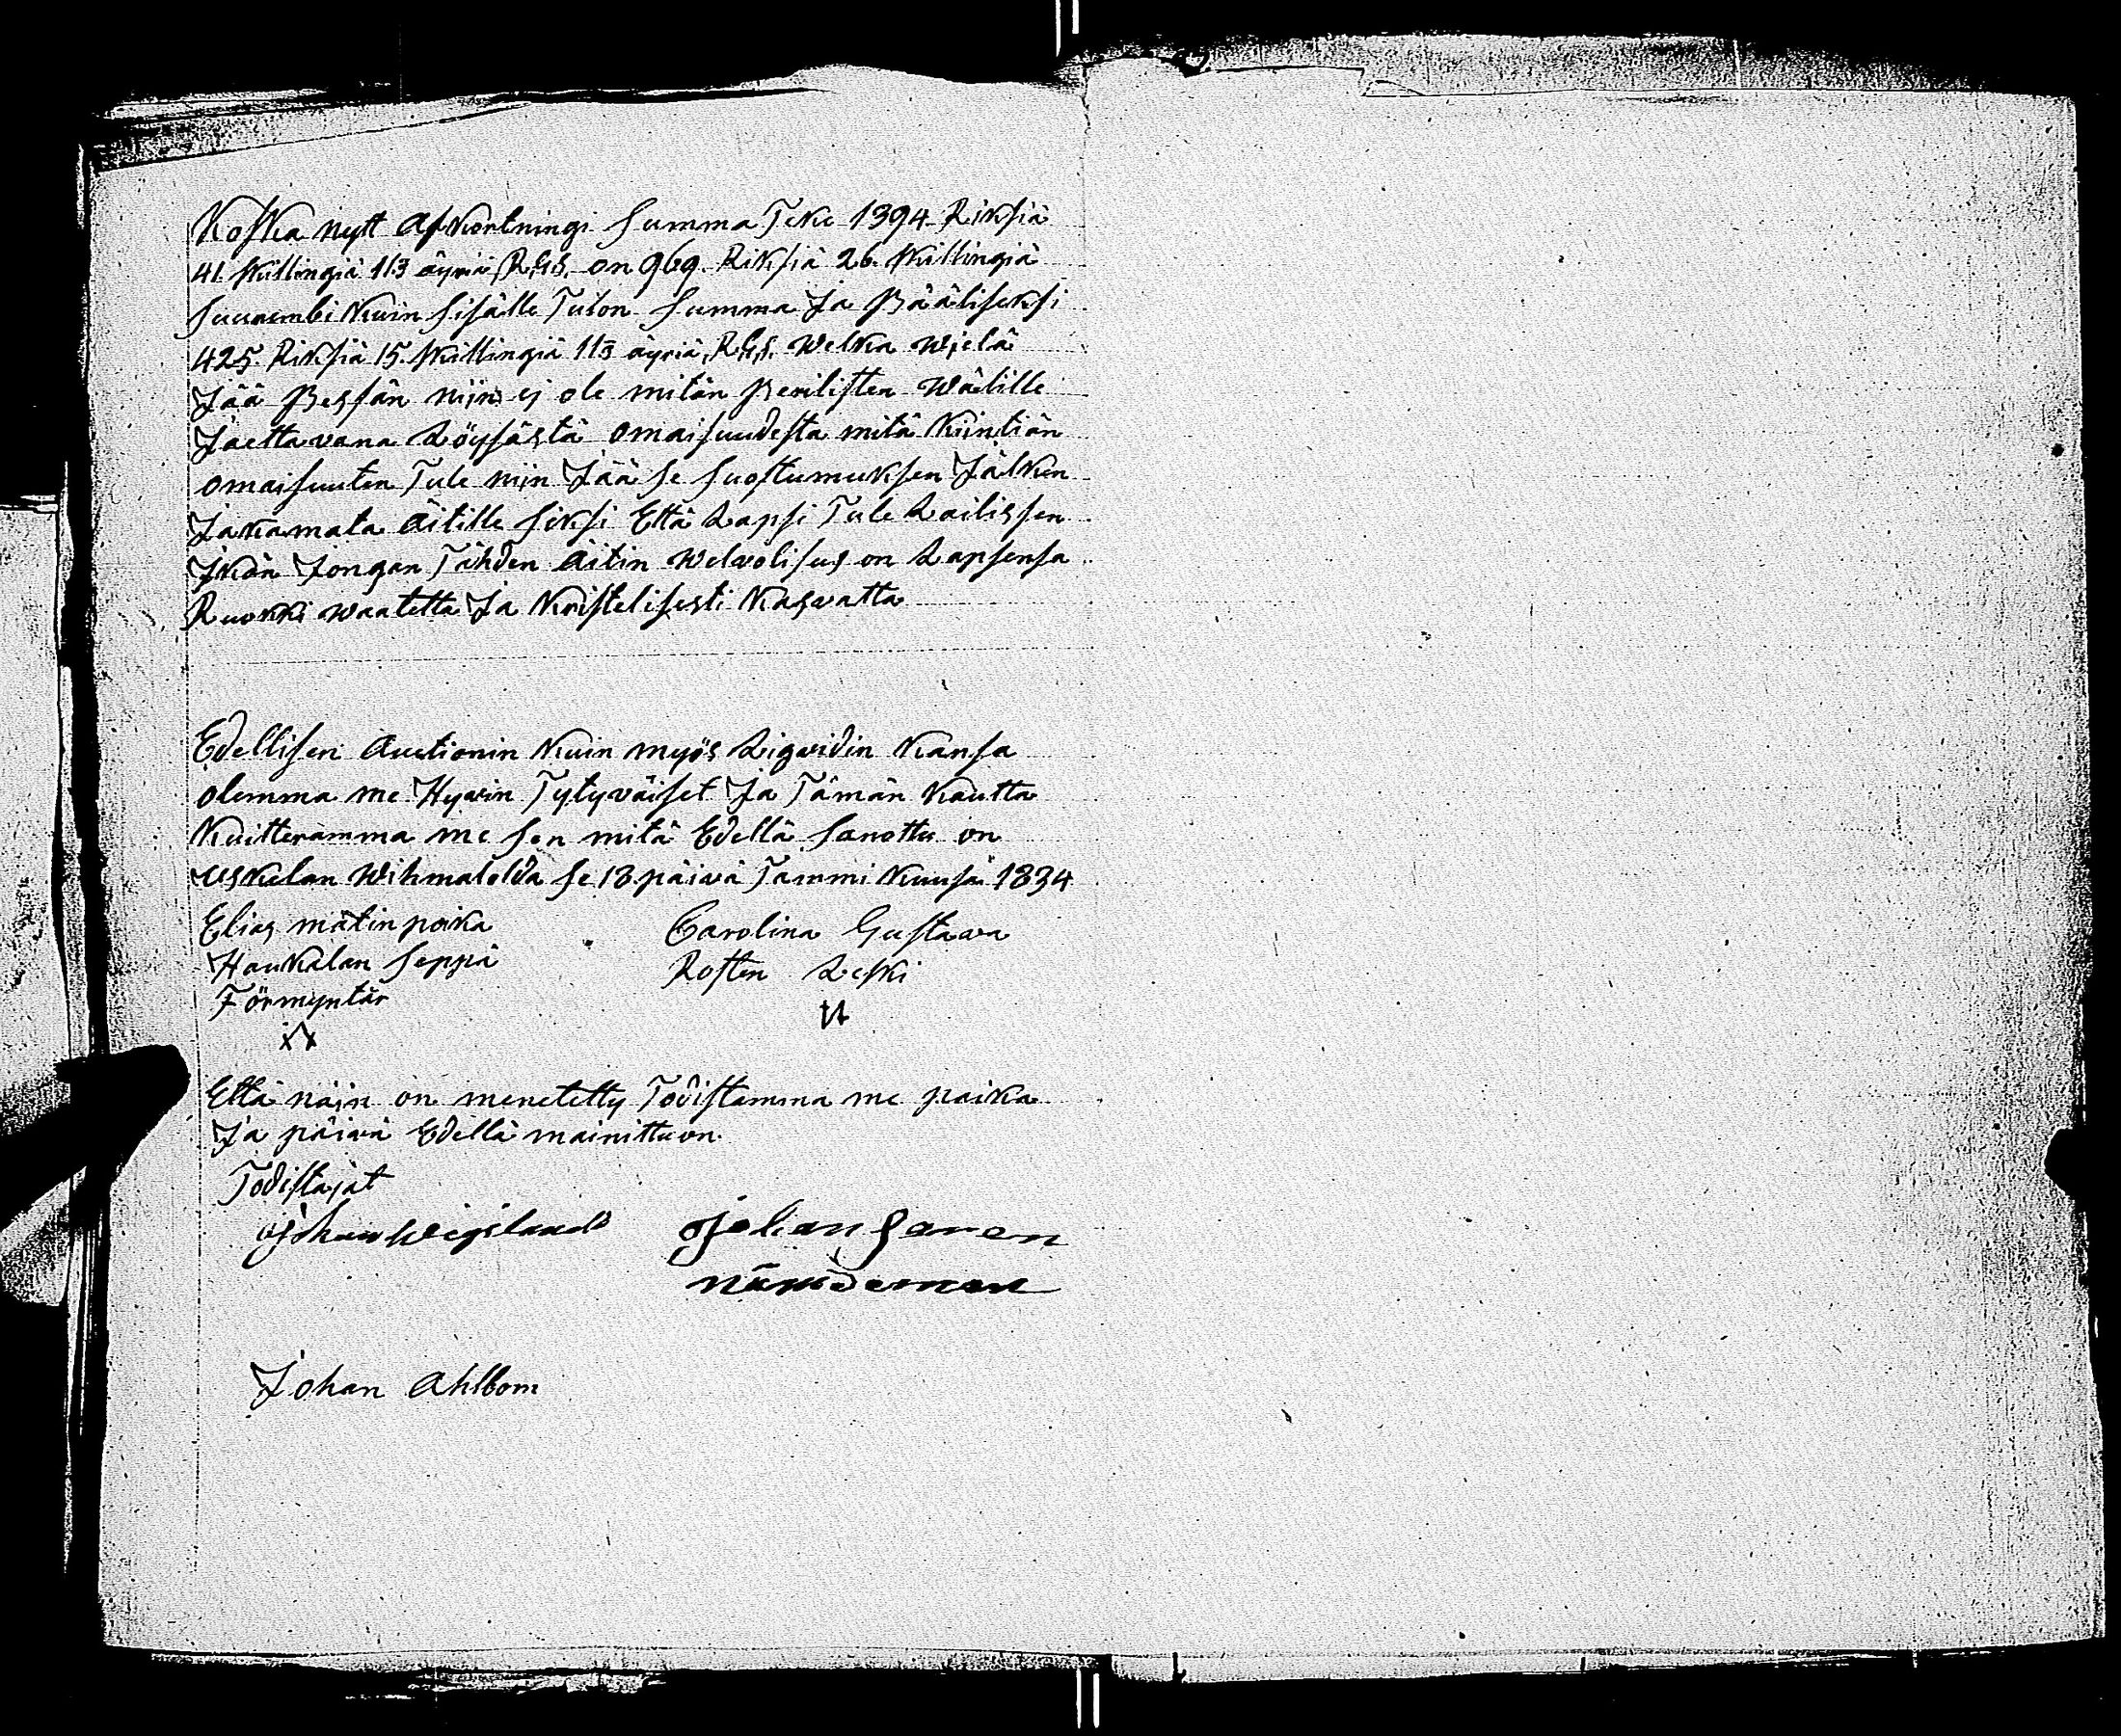 Koska nytt Afkortningi Summa Teke 1394 Riksiä
41. Killingiä 11 3 äyriä, R.G.S. on 969. Riksiä 26. Killingiä
Suurembi Kuin Sisälle Tulon Summa Ja Pääliseksi
425 Riksiä 15. Killingiä 11 3 äyriä, R.G.S. Welka Wielä
Jää Pessän niin ej ole mitän Perilisten Wälille
Jaettavana Löysästä omaisuudesta mitä Kiintiän
omaisuuten Tule niin Jää se suostumuksen Jälken
Jakamata Äitille Siksi Että Lapsi Tule Lailissen
Ikän Jongan Tähden Äitin Welvolisus on Lapsensa
Ruokki waatetta Ja Kristelisesti Kasvatta
Edellisen Auctionin Kuin myös Liqvidin Kansa
olemma me Hyvin Tytyväiset Ja Tämän Kautta
Kuitteramma me sen mitä Edellä Sanottu on
Uskelan Wihmalolda se 18 päivä Tammi Kuusa 1834
Elias mätin poika Carolina Gustava
Haukalan Seppä Rosten Leski
Förmyntär
Että näin on menetetty Todistamma me paika
Ja päivä Edellä mainittu on
Todistajat
Johan Johan
nämdeman
Johan Ahlbom